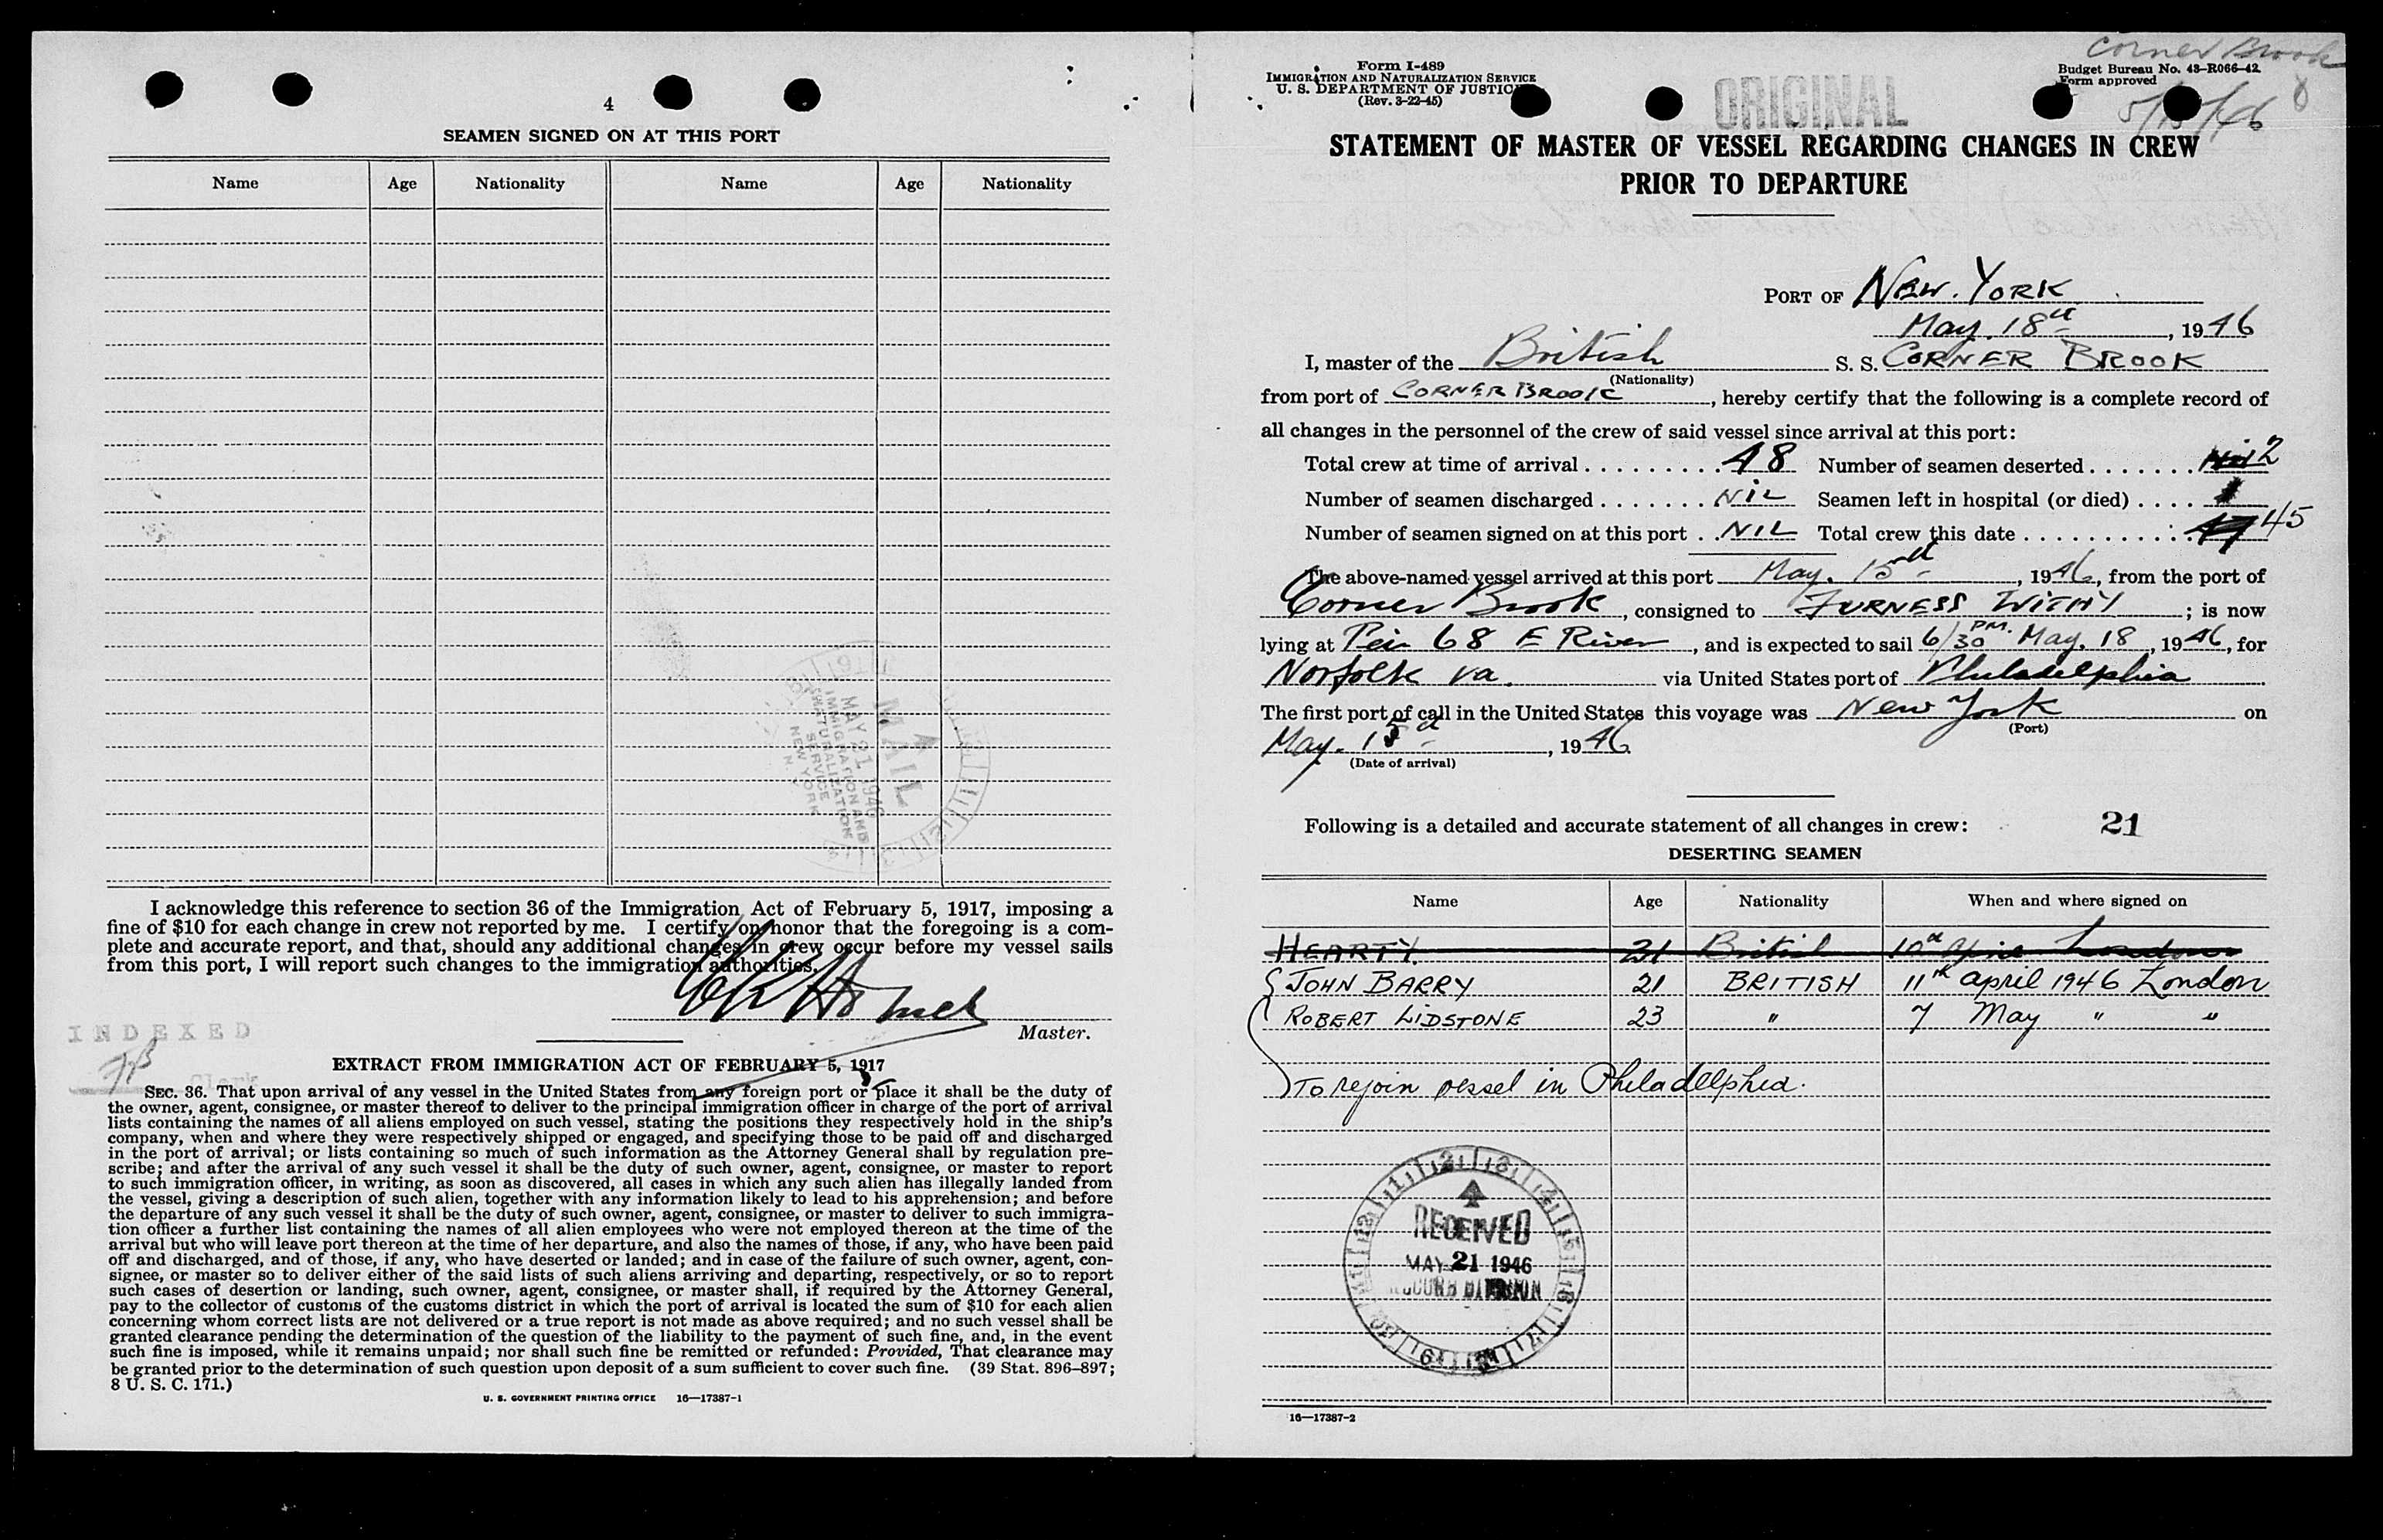 4
SEAMEN SIGNED ON AT THIS PORT
Name Age Nationality Name Age Nationality
A
MAIL
MAY 21 1946
IMMIGRATION AND
NATURALIZATION
SERVICE
NEW YORK
I acknowledge this reference to section 36 of the Immigration Act of February 5, 1917, imposing a
fine of $10 for each change in crew not reported by me. I certify on honor that the foregoing is a com-
plete and accurate report, and that, should any additional changes in crew occur before my vessel sails
from this port, I will report such changes to the immigration authorities.
Master.
INDEXED
EXTRACT FROM IMMIGRATION ACT OF FEBRUARY 5, 1917
SEC. 36. That upon arrival of any vessel in the United States from any foreign port or place it shall be the duty of
the owner, agent, consignee, or master thereof to deliver to the principal immigration officer in charge of the port of arrival
lists containing the names of all aliens employed on such vessel, stating the positions they respectively hold in the ship's
company, when and where they were respectively shipped or engaged, and specifying those to be paid off and discharged
in the port of arrival; or lists containing so much of such information as the Attorney General shall by regulation pre-
scribe; and after the arrival of any such vessel it shall be the duty of such owner, agent, consignee, or master to report
to such immigration officer, in writing, as soon as discovered, all cases in which any such alien has illegally landed from
the vessel, giving a description of such alien, together with any information likely to lead to his apprehension; and before
the departure of any such vessel it shall be the duty of such owner, agent, consignee, or master to deliver to such immigra-
tion officer a further list containing the names of all alien employees who were not employed thereon at the time of the
arrival but who will leave port thereon at the time of her departure, and also the names of those, if any, who have been paid
off and discharged, and of those, if any, who have deserted or landed; and in case of the failure of such owner, agent, con-
signee, or master so to deliver either of the said lists of such aliens arriving and departing, respectively, or so to report
such cases of desertion or landing, such owner, agent, consignee, or master shall, if required by the Attorney General,
pay to the collector of customs of the customs district in which the port of arrival is located the sum of $10 for each alien
concerning whom correct lists are not delivered or a true report is not made as above required; and no such vessel shall be
granted clearance pending the determination of the question of the liability to the payment of such fine, and, in the event
such fine is imposed, while it remains unpaid; nor shall such fine be remitted or refunded: Provided, That clearance may
be granted prior to the determination of such question upon deposit of a sum sufficient to cover such fine. (39 Stat. 896–897;
8 U. S. C. 171.)
U. S. GOVERNMENT PRINTING OFFICE 16—17387-1
Corner Brook
Form I-489
IMMIGRATION AND NATURALIZATION SERVICE
U. S. DEPARTMENT OF JUSTICE
(Rev. 3-22-45)
Budget Bureau No. 43-R066-42
Form approved
5/15/46
ORIGINAL
STATEMENT OF MASTER OF VESSEL REGARDING CHANGES IN CREW
PRIOR TO DEPARTURE
PORT OF NEW. YORK
May. 18th, 1946
I, master of the British S. S. CORNER BROOK
(Nationality)
from port of CORNER BROOK, hereby certify that the following is a complete record of
all changes in the personnel of the crew of said vessel since arrival at this port:
Total crew at time of arrival . . . . . . . . . 48 Number of seamen deserted . . . . . . . 2
Number of seamen discharged . . . . . . . NIL Seamen left in hospital (or died) . . . . 1
Number of seamen signed on at this port . . NIL Total crew this date . . . . . . . . . . . 45
The above-named vessel arrived at this port May. 15th, 1946, from the port of
Corner Brook, consigned to FURNESS WITHY; is now
lying at Pier 68 E River, and is expected to sail 6/30 PM. May. 18, 1946, for
Norfolk Va. via United States port of Philadelphia
The first port of call in the United States this voyage was New York on
(Port)
May. 15th, 1946
(Date of arrival)
Following is a detailed and accurate statement of all changes in crew: 21
DESERTING SEAMEN
Name Age Nationality When and where signed on
HEARTY. 21 British 10th London
JOHN BARRY 21 BRITISH 11th april 1946 London
ROBERT LIDSTONE 23 " 7 May " "
To rejoin vessel in Philadelphia.
RECEIVED
MAY 21 1946
RECORD DIVISION
16—17387-2